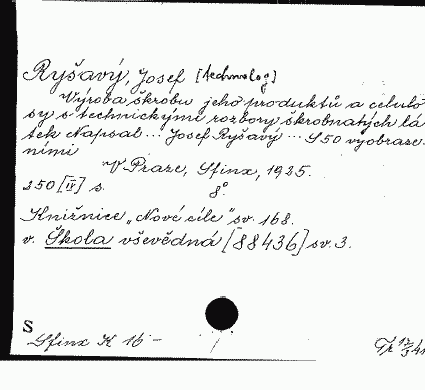 Ryšavý, Josef [technolog]
Výroba škrobu jeho produktů a celulo
sy s technickými rozbory škrobnatých lá
tek Napsal ... Josef Ryšavý ... S 50 vyobraze
ními
V Praze, Sfinx, 1925.
250 [IV] s. 8°.
Knižnice „Nové cíle" sv. 168.
v. Škola vševědná [88436] sv. 3.
S
Sfinx K 16 -